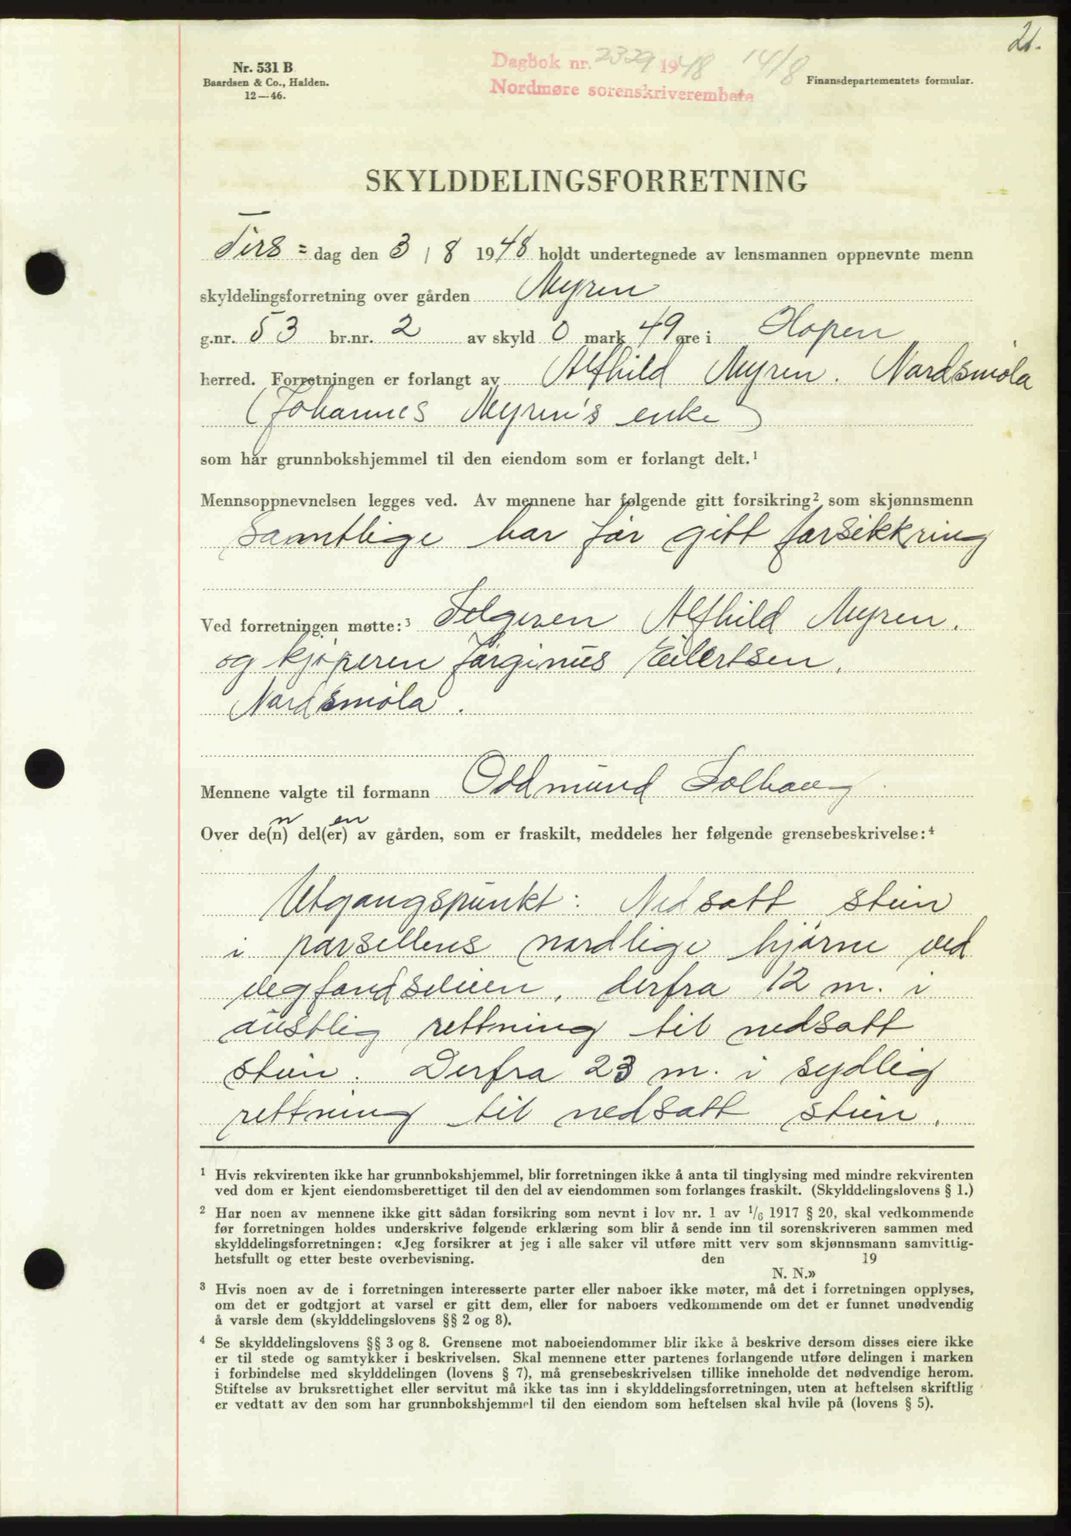 21.
Nr. 531 B
Baardsen & Co., Halden.
12—46.
Dagbok nr. 2329 1948 14/8
Nordmøre sorenskriverembete
Finansdepartementets formular.
SKYLDDELINGSFORRETNING
Tirs= dag den 3 / 8 1948 holdt undertegnede av lensmannen oppnevnte menn
skyldelingsforretning over gården Myren
g.nr. 53 br.nr. 2 av skyld 0 mark 49 øre i Hopen
herred. Forretningen er forlangt av Alfhild Myren. Nordsmøla
(Johannes Myren's enke)
som har grunnbokshjemmel til den eiendom som er forlangt delt.¹
Mennsoppnevnelsen legges ved. Av mennene har følgende gitt forsikring² som skjønnsmenn
Samtlige har før gitt forsikkring
Ved forretningen møtte:³ Selgeren Alfhild Myren.
og kjøperen Jørginus Eilertsen.
Nordsmøla.
Mennene valgte til formann Oddmund Solhaug.
Over de(n) del(er) av gården, som er fraskilt, meddeles her følgende grensebeskrivelse:⁴
Utgangspunkt: Nedsatt stein
i parsellens nordlige hjørne ved
vegfondsveien, derfra 12 m. i
austlig rettning til nedsatt
stein. Derfra 23 m. i sydlig
rettning til nedsatt stein.
¹ Hvis rekvirenten ikke har grunnbokshjemmel, blir forretningen ikke å anta til tinglysing med mindre rekvirenten
ved dom er kjent eiendomsberettiget til den del av eiendommen som forlanges fraskilt. (Skylddelingslovens § 1.)
² Har noen av mennene ikke gitt sådan forsikring som nevnt i lov nr. 1 av 1/6 1917 § 20, skal vedkommende
før forretningen holdes underskrive følgende erklæring som blir å sende inn til sorenskriveren sammen med
skylddelingsforretningen: «Jeg forsikrer at jeg i alle saker vil utføre mitt verv som skjønnsmann samvittig-
hetsfullt og etter beste overbevisning. den 19
N. N.»
³ Hvis noen av de i forretningen interesserte parter eller naboer ikke møter, må det i forretningen opplyses,
om det er godtgjort at varsel er gitt dem, eller for naboers vedkommende om det er funnet unødvendig
å varsle dem (skylddelingslovens §§ 2 og 8).
⁴ Se skylddelingslovens §§ 3 og 8. Grensene mot naboeiendommer blir ikke å beskrive dersom disses eiere ikke
er til stede og samtykker i beskrivelsen. Skal mennene etter partenes forlangende utføre delingen i marken
i forbindelse med skylddelingen (lovens § 7), må grensebeskrivelsen tillike inneholde det nødvendige herom.
Stiftelse av bruksrettighet eller servitut må ikke tas inn i skylddelingsforretningen, uten at heftelsen skriftlig
er vedtatt av den som har grunnbokshjemmel til den eiendom som heftelsen skal hvile på (lovens § 5).